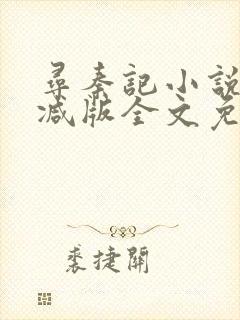 尋秦記小說
减版全文免
裘捷開